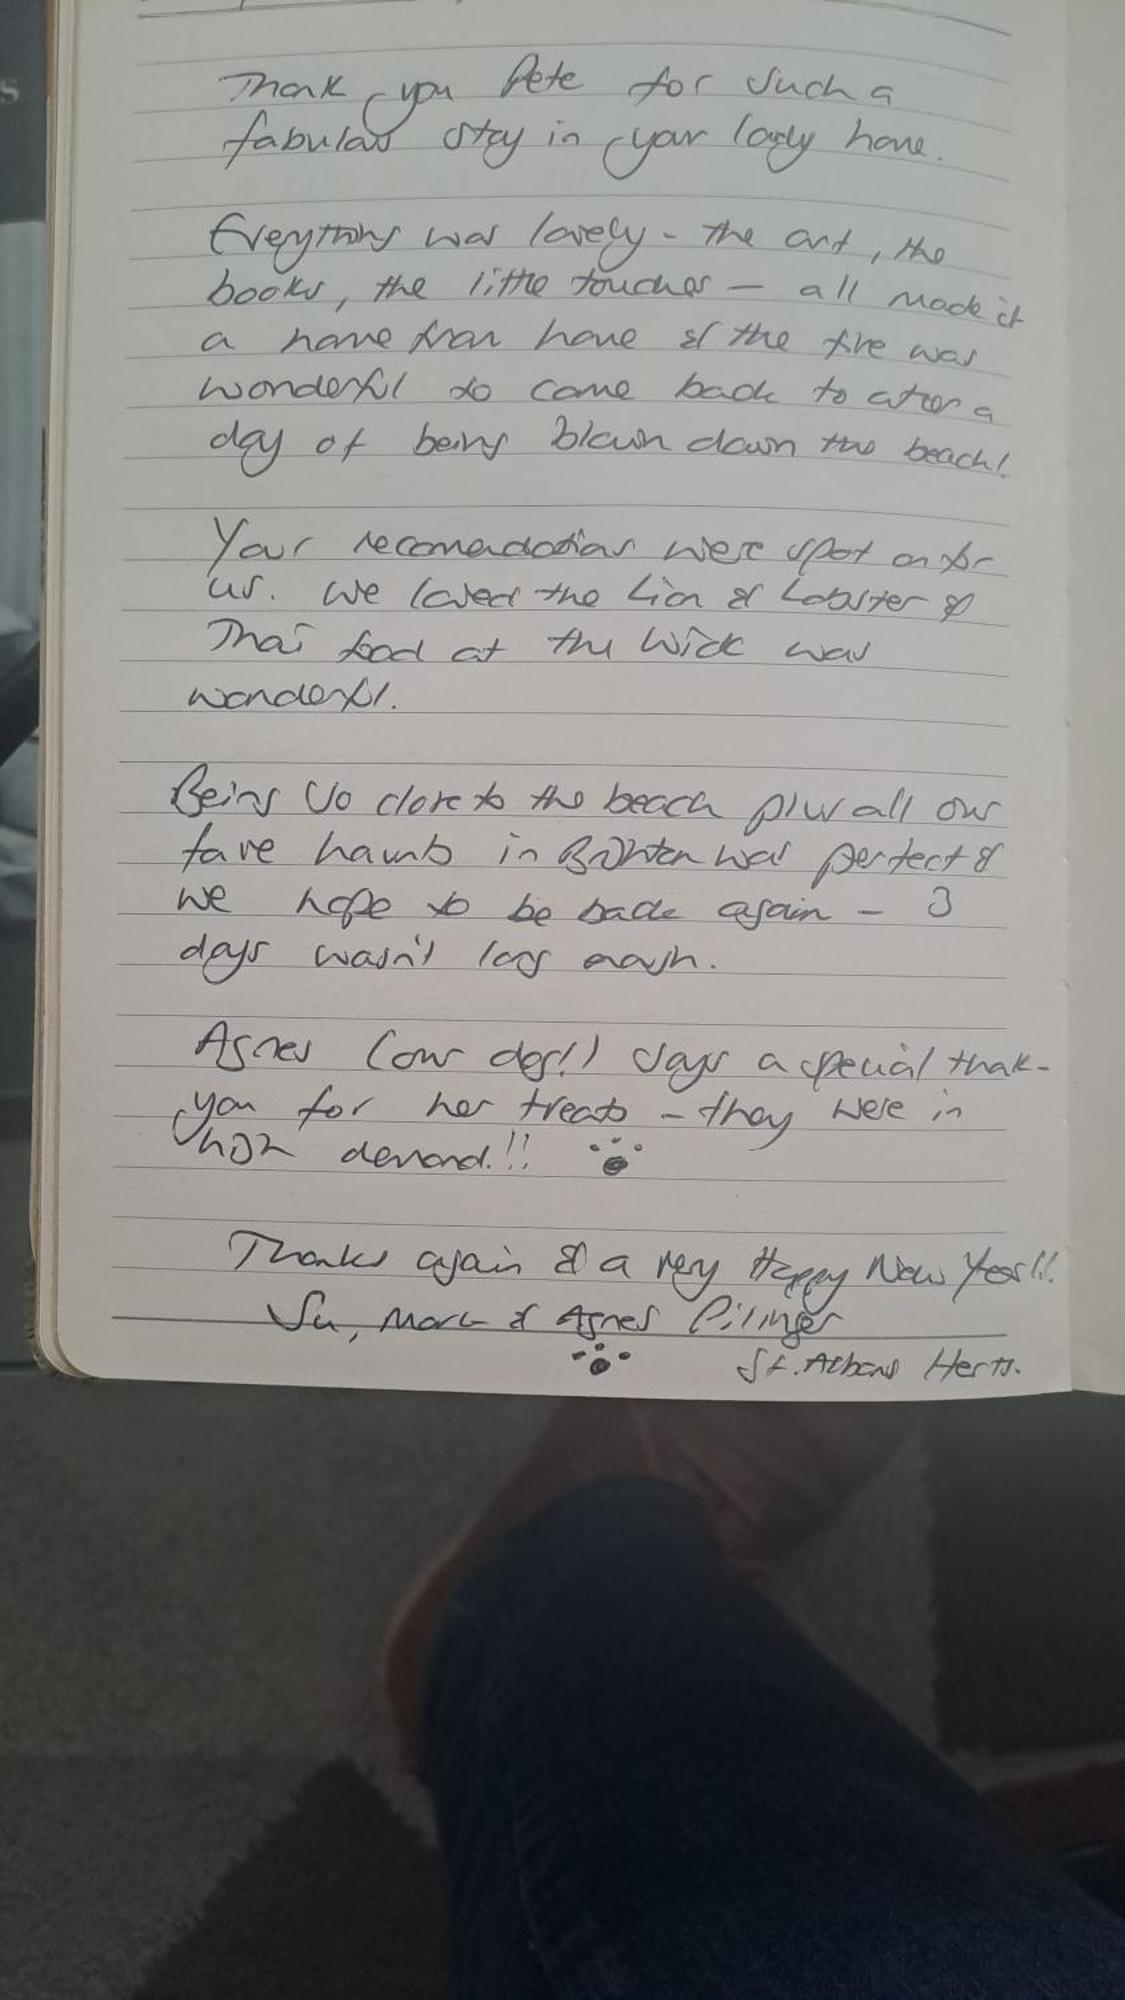 s
Thank you Pete for such a
fabulous stay in your lovely home.
Everything was lovely - the art, the
books, the little touches - all made it
a home from home & the fire was
wonderful to come back to after a
day of being blown down the beach!
Your recomendations were spot on for
us. We loved the Lion & Lobster &
Thai food at the Wick was
wonderful.
Being so close to the beach plus all our
fave haunts in Brighton was perfect &
we hope to be back again - 3
days wasn't long enough.
Agnes (our dog!) says a special thank-
you for her treats - they were in
high demand!!
Thanks again & a very Happy New Year!!
Su, Marc & Agnes
St. Albans Herts.